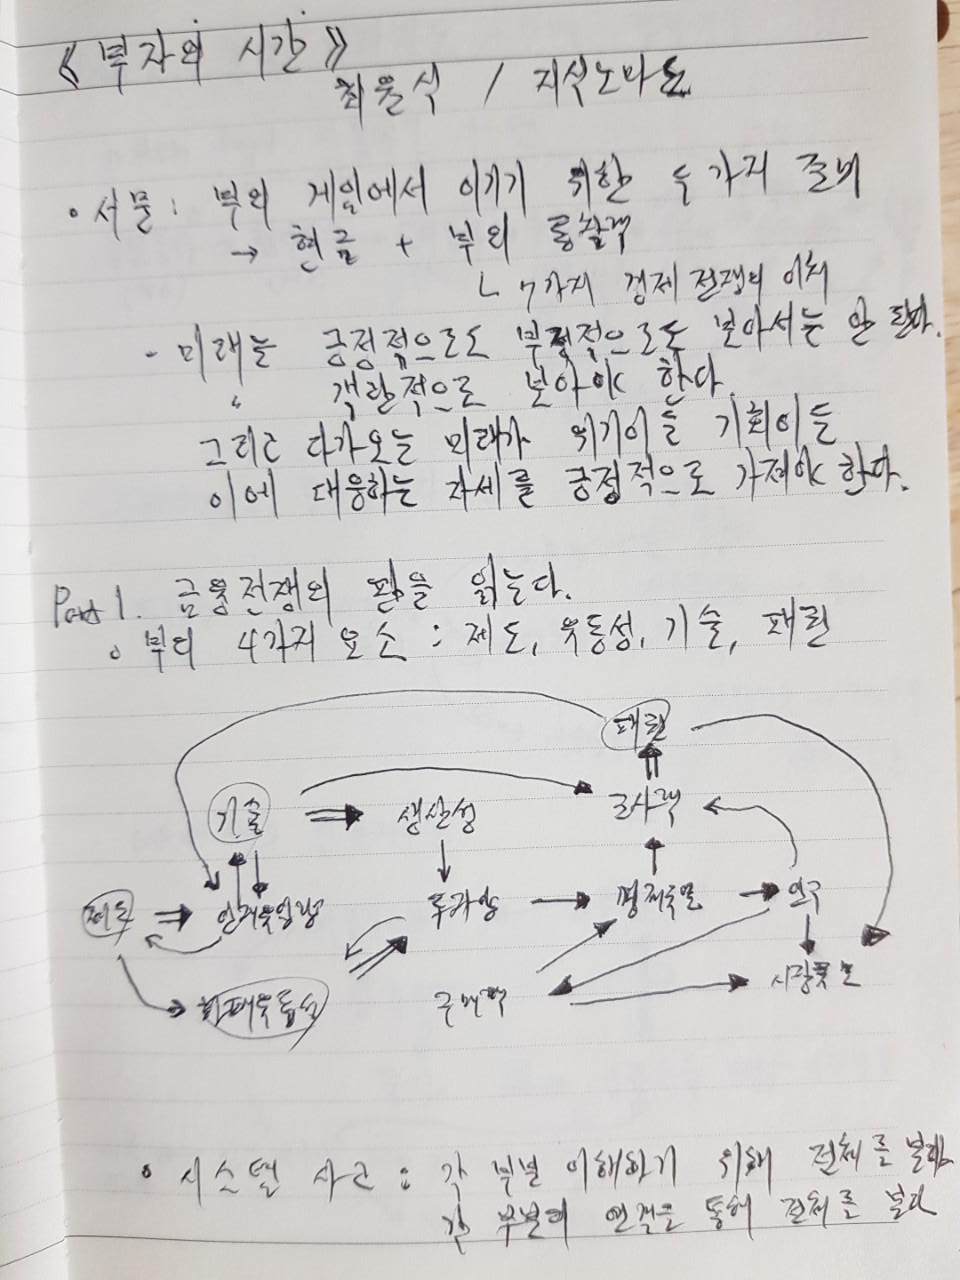 《 부자의 시간 》
최윤식 / 지식노마드
• 서문 : 부의 게임에서 이기기 위한 두 가지 준비
→ 현금 + 부의 통찰력
ㄴ 7가지 경제 전쟁의 이치
- 미래는 긍정적으로도 부정적으로도 보아서는 안 된다.
〃 객관적으로 보아야 한다.
그리고 다가오는 미래가 위기이든 기회이든
이에 대응하는 자세를 긍정적으로 가져야 한다.
Part 1. 금융전쟁의 판을 읽는다.
• 부의 4가지 요소 : 제도, 유동성, 기술, 패권
패권
기술 생산성 군사력
제도 투자량 경제규모 인구
화폐유동성 구매력 시장규모
• 시스템 사고 : 각 부분 이해하기 위해 전체를 본다
각 부분의 연결을 통해 전체를 본다